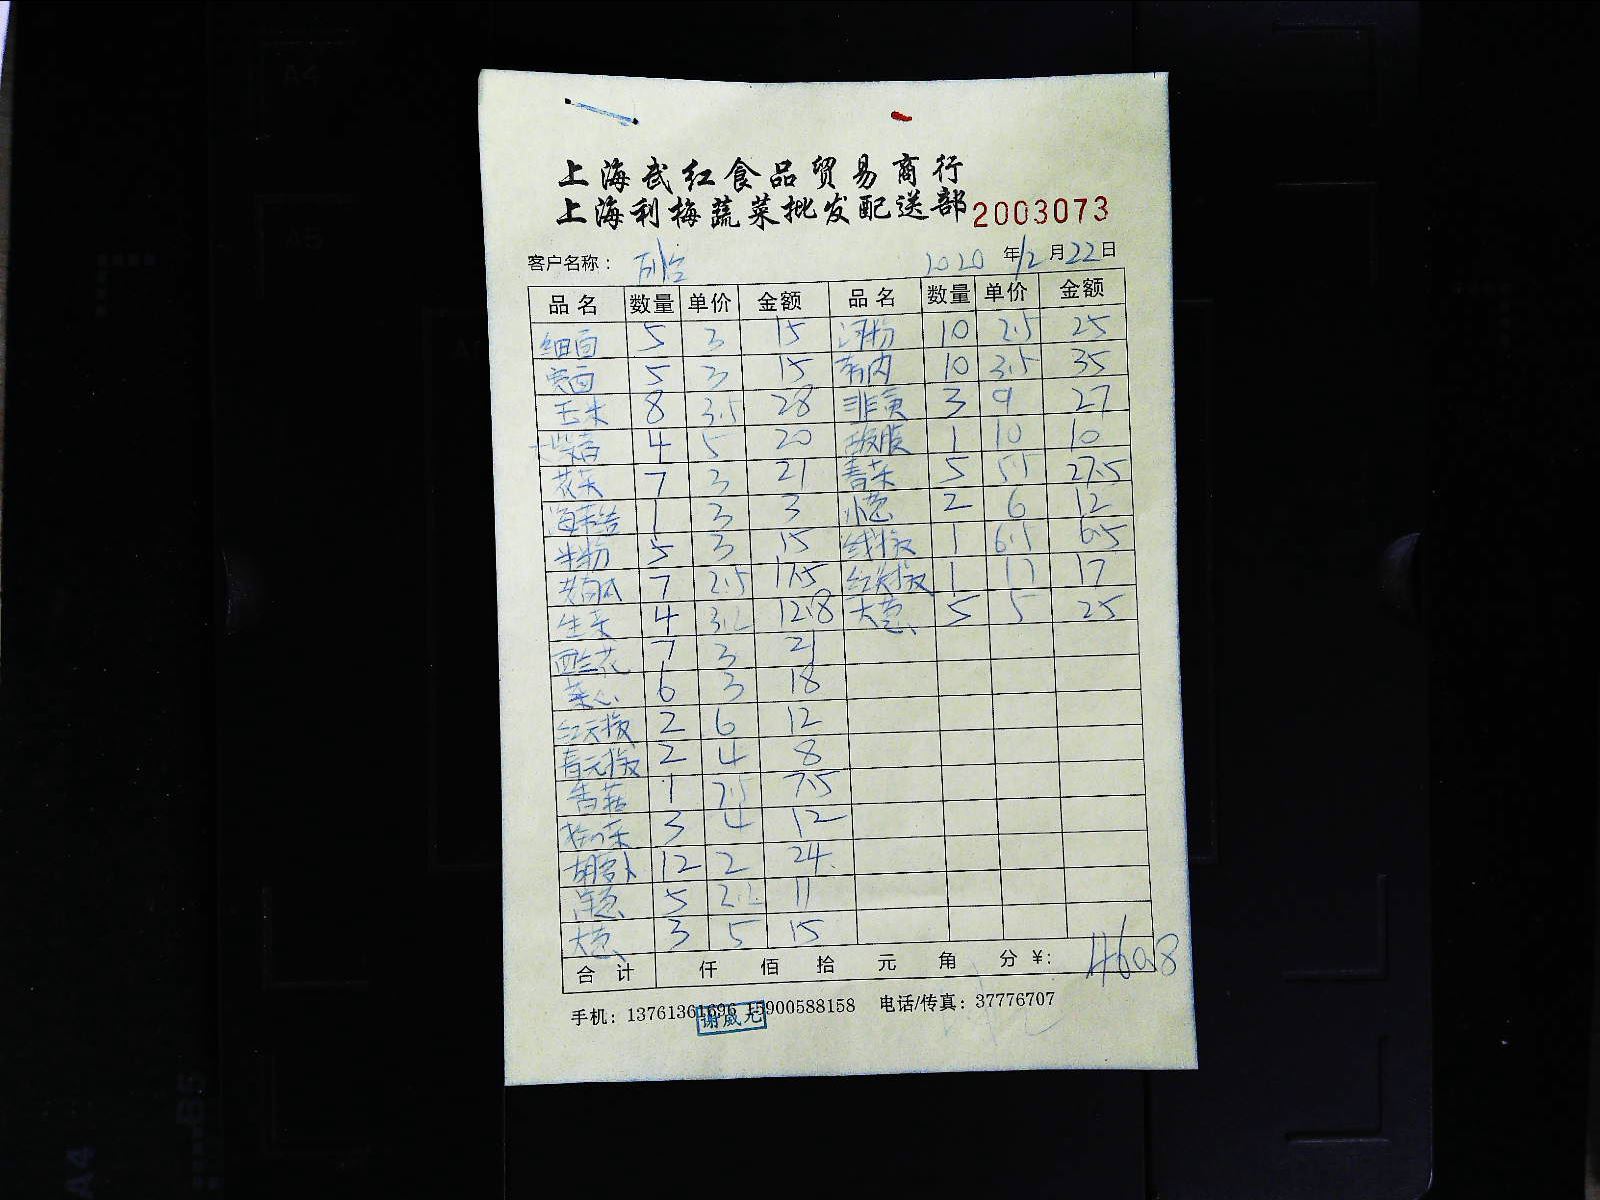 上海武红食品贸易商行
上海利梅蔬菜批发配送部 2003073
客户名称： 2020 年 12 月 22 日
品名 数量 单价 金额 品名 数量 单价 金额
细面 5 3 15 河粉 10 2.5 25
宽面 5 3 15 10 3.5 35
玉米 8 3.5 28 韭黄 3 9 27
4 5 20 1 10 10
花菜 7 3 21 青菜 5 5.5 27.5
海带结 1 3 3 小葱 2 6 12
米粉 5 3 15 线椒 1 6.5 6.5
老南瓜 7 2.5 17.5 红尖椒 1 17 17
生菜 4 3.2 12.8 大葱 5 5 25
西兰花 7 3 21
菜心 6 3 18
红元椒 2 6 12
青元椒 2 4 8
香菇 1 7.5 7.5
3 4 12
胡萝卜 12 2 24
洋葱 5 2.2 11
大葱 3 5 15
合计 仟 佰 拾 元 角 分 ¥: 460.8
手机：13761361696 15900588158 电话/传真：37776707
谢威元